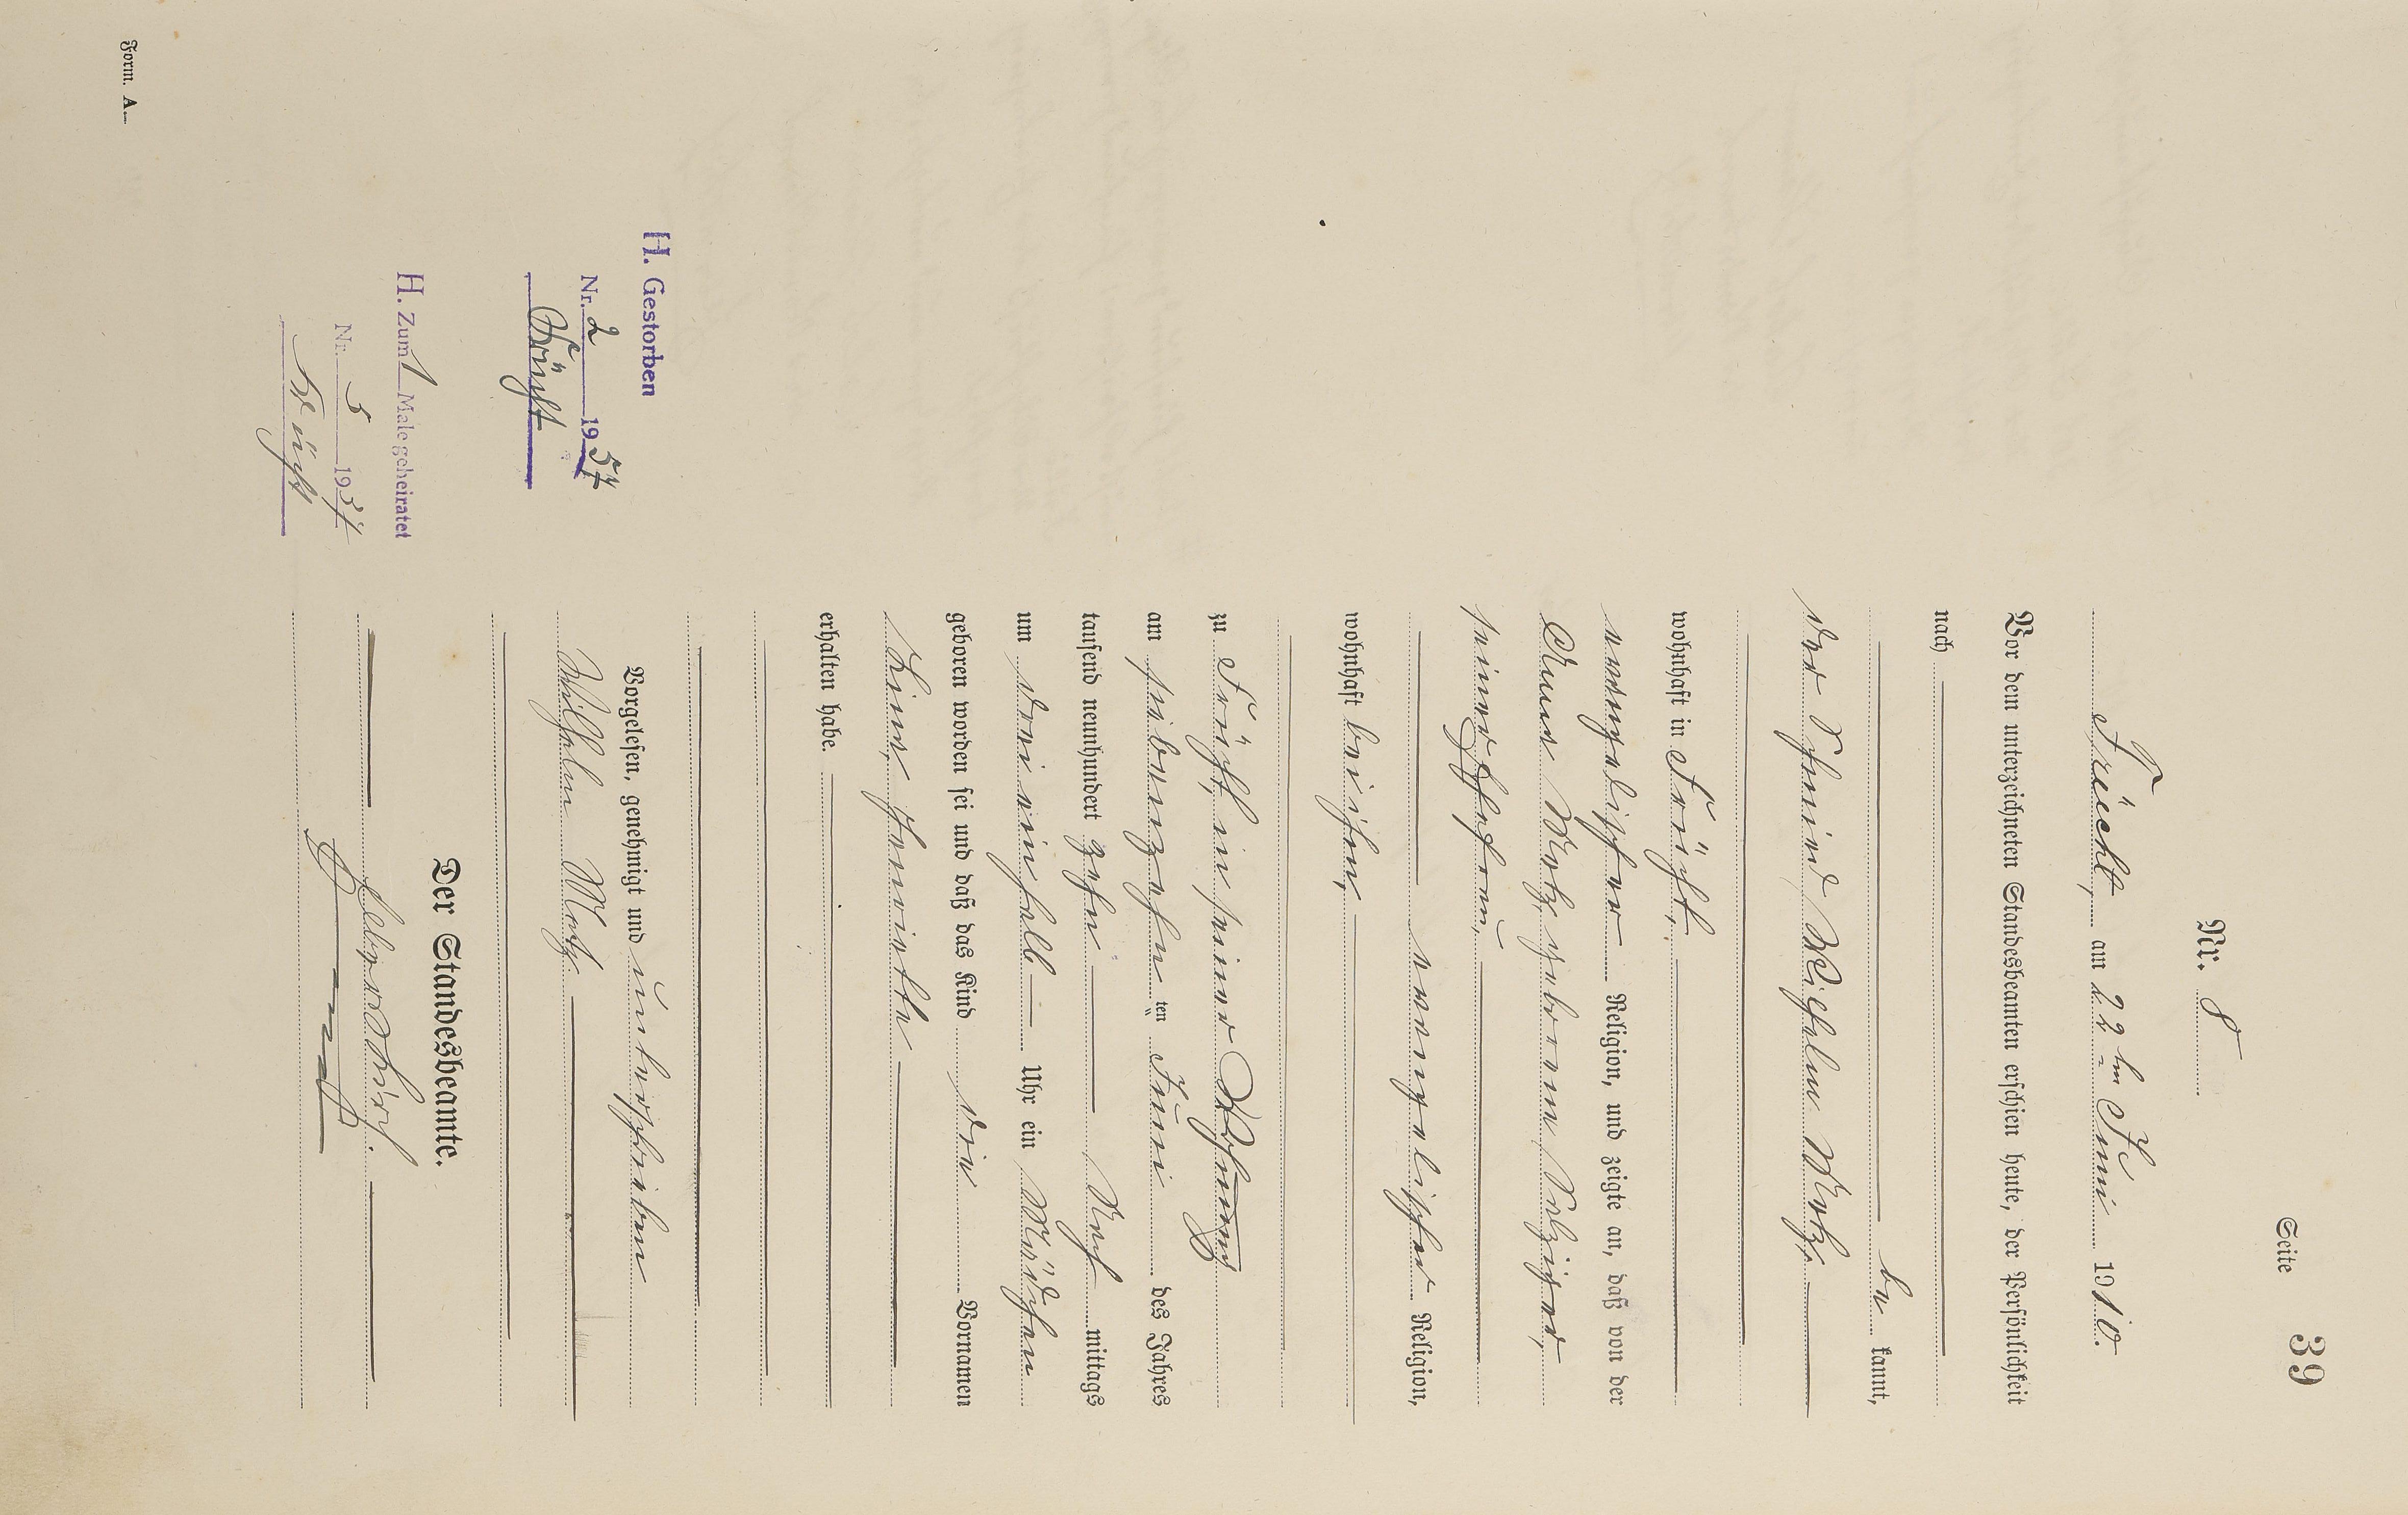 Seite 39
Nr. 8
Frücht, am 22ten Juni 1910.
Vor dem unterzeichneten Standesbeamten erschien heute, der Persönlichkeit
nach
be kannt,
der Schmied Wilhelm Metz,
wohnhaft in Frücht,
evangelischer Religion, und zeigte an, daß von der
Anna Metz geborene Salziger,
seiner Ehefrau,
evangelischer Religion,
wohnhaft bei ihm,
zu Frücht, in seiner Wohnung
am siebenzehn ten Juni des Jahres
tausend neunhundert zehn Nach mittags
um drei einhalb Uhr ein Mädchen
geboren worden sei und daß das Kind die Vornamen
Lina, Henriette
erhalten habe.
Vorgelesen, genehmigt und unterschrieben
Wilhelm Metz.
Der Standesbeamte.
H. Gestorben
Nr. 2 1957
Frücht
H. Zum 1 Male geheiratet
Nr. 5 1937
Frücht
Form. A.